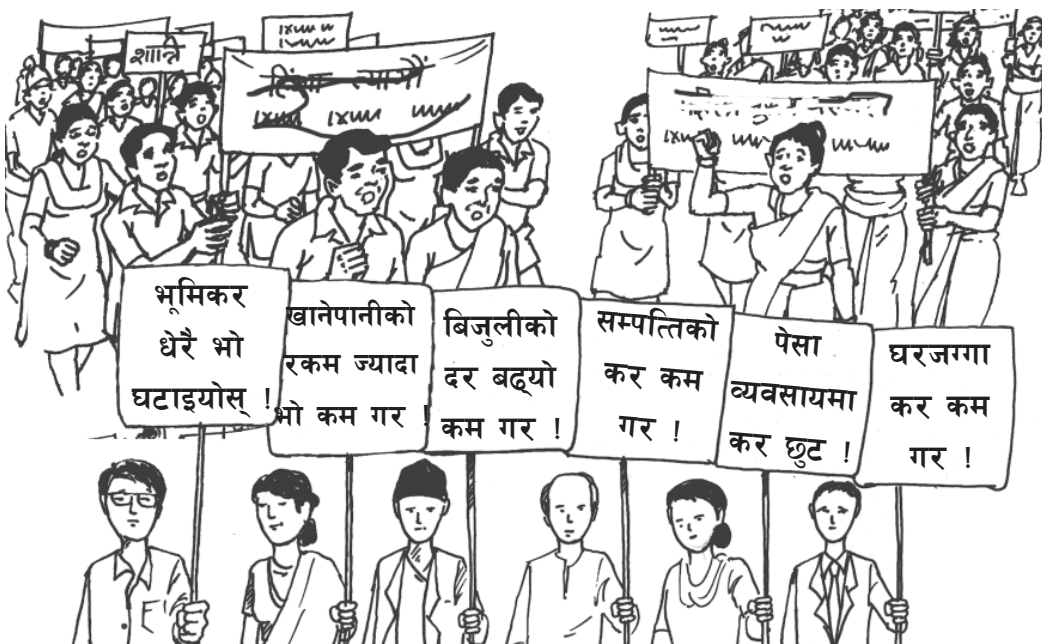 शान्ति
भूमिकर
धेरै भो
घटाइयोस् !
खानेपानीको
रकम ज्यादा
भो कम गर !
बिजुलीको
दर बढ्यो
कम गर !
सम्पत्तिको
कर कम
गर !
पेसा
व्यवसायमा
कर छुट !
घरजग्गा
कर कम
गर !